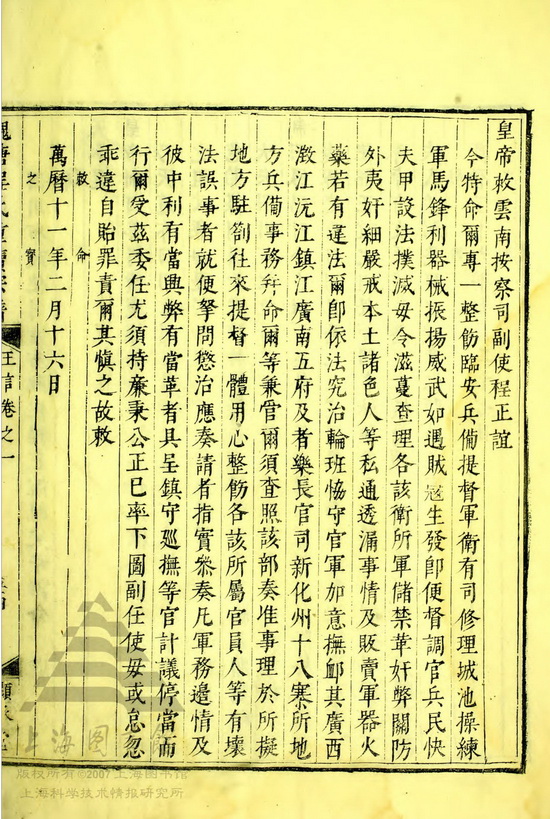 皇帝敕雲南按察司副使程正誼
今特命爾專一整飭臨安兵備提督軍衛有司修理城池操練
軍馬鋒利器械振揚威武如遇賊寇生發即便督調官兵民快
夫甲設法撲滅毋令滋蔓查理各該衛所軍儲禁革奸弊關防
外夷奸細嚴戒本土諸色人等私通透漏事情及販賣軍器火
藥若有違法爾即依法究治輪班恊守官軍加意撫卹其廣西
澂江沅江鎮江廣南五府及者樂長官司新化州十八寨所地
方兵備事務幷命爾等兼管爾須查照該部奏准事理於所擬
地方駐劄往來提督一體用心整飭各該所屬官員人等有壞
法誤事者就便拏問懲治應奏請者指實叅奏凡軍務邊情及
彼中利有當興弊有當革者具呈鎮守廵撫等官計議停當而
行爾受茲委任尤須持亷秉公正已率下圖副任使毋或怠忽
乖違自貽罪責爾其愼之故敕
敕命
萬曆十一年二月十六日
之寳
程氏重
王言卷之一
上海圖
版权所有©2007上海图书馆
上海科学技术情报研究所